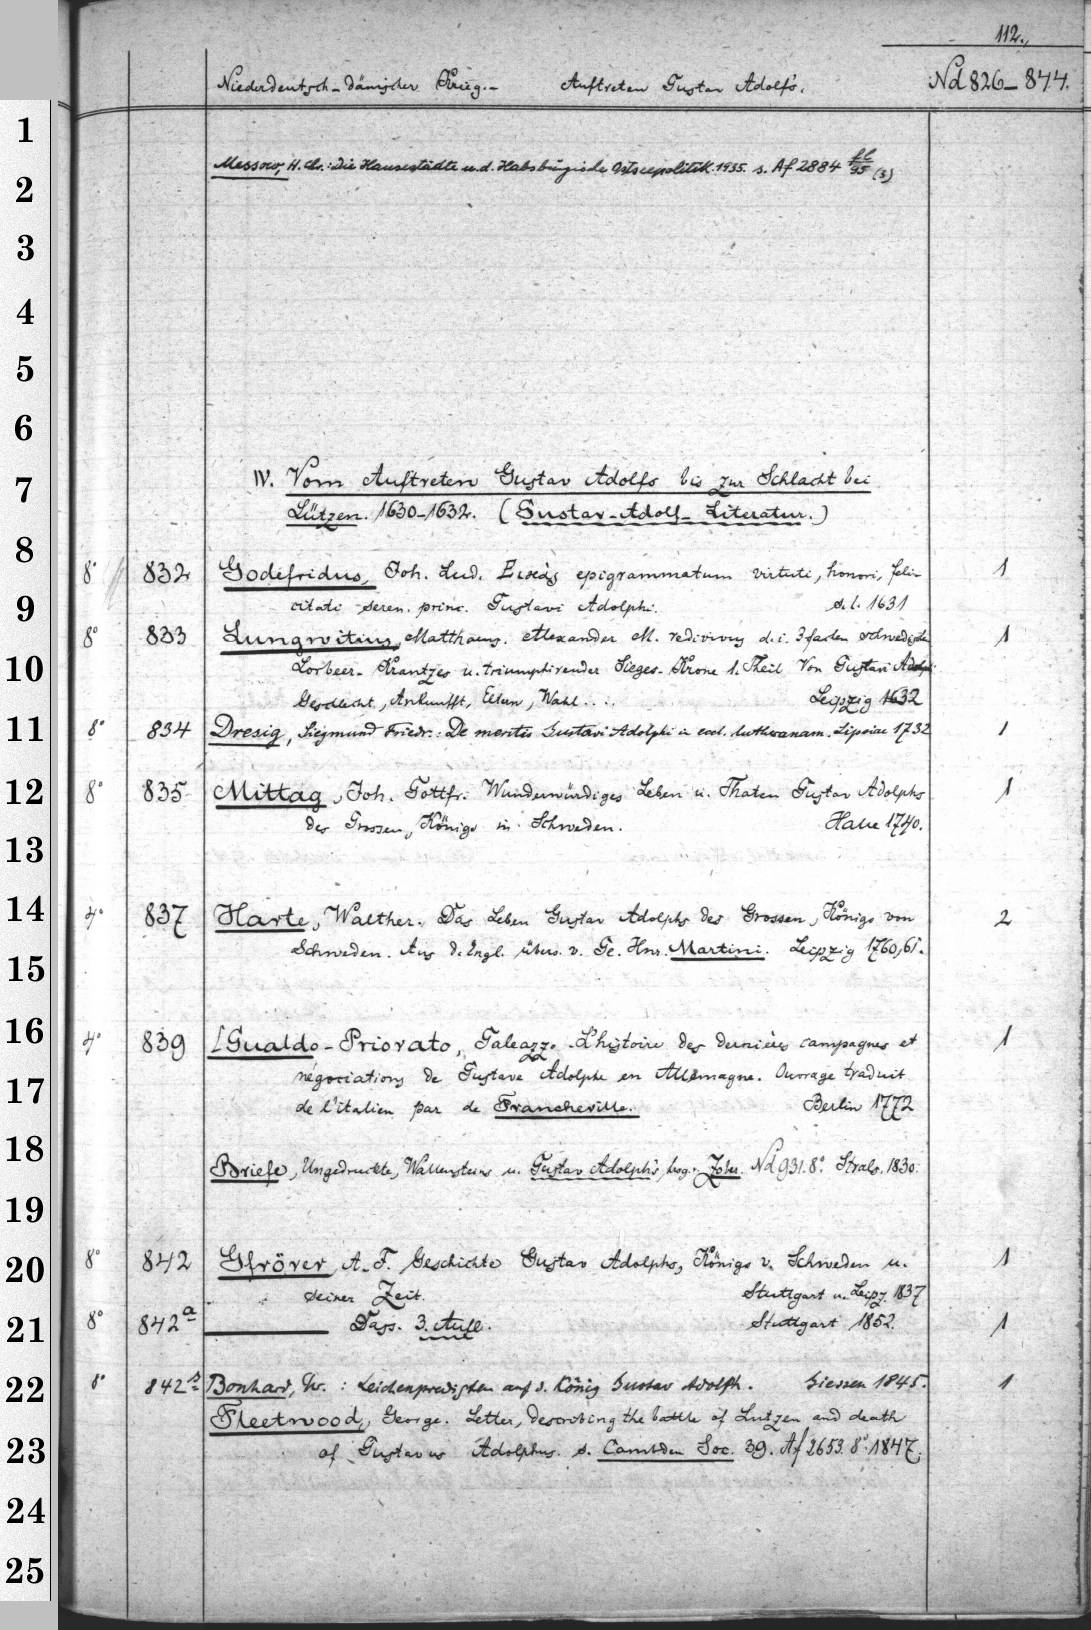 112.
Niederdeutsch-dänischer Krieg.- Auftreten Gustav Adolfs. Nd 826-844.
1
Messow, H. Chr.: Die Hansestädte u. d. Habsburgische Ostseepolitik. 1935. s. Af 2884 (3)
2
3
4
5
6
7 IV. Vom Auftreten Gustav Adolfs bis zur Schlacht bei
Lützen. 1630-1632. (Gustav-Adolf-Literatur.)
8
8° 832 Godefridus, Joh. Lud. epigrammatum virtuti, honori, feli-
9 citati seren. princ. Gustavi Adolphi. s. l. 1631 1
8° 833 Lungwitius, Matthaeus. Alexander M. redivivus d. i. 3facher schwedischer 1
10 Lorbeer-Krantzes u. triumphirender Sieges-Krone 1. Theil Von Gustavi Adolphi
Geschlecht, Ankunfft, Eltern, Wahl.... Leipzig 1632
11 8° 834 Dresig, Siegmund Friedr.: De meritis Gustavi Adolphi in eccl. lutheranam. Lipsiae 1732 1
12 8° 835 Mittag, Joh. Gottfr. Wunderwürdiges Leben u. Thaten Gustav Adolphs 1
des Grossen, Königs in Schweden. Halle 1740.
13
14 4° 837 Harte, Walther. Das Leben Gustav Adolphs des Grossen, Königs von 2
Schweden. Aus d. Engl. übers. v. Ge. Hnr. Martini. Leipzig 1760,61.
15
16 4° 839 [Gualdo-Priorato, Galeazzo. L'histoire des dernières campagnes et 1
négociations de Gustave Adolphe en Allemagne. Ouvrage traduit
17 de l'italien par de Francheville. Berlin 1772
18 Briefe, Ungedruckte, Wallensteins u. Gustav Adolph's, hrsg. Zober. Nd 931. 8° Strals. 1830.
19
20 8° 842 Gfrörer, A. F. Geschichte Gustav Adolphs, Königs v. Schweden u. 1
seiner Zeit. Stuttgart u. Leipz. 1837
21 8° 842a Dass. 3. Aufl. Stuttgart 1852. 1
22 8° 842 Bonhard, Th.: Leichenpredigten auf d. König Gustav Adolph. Giessen 1845. 1
Fleetwood, George. Letter, describing the battle of Lutzen and death
23 of Gustavus Adolphus. s. Cambden Soc. 39. Af 2653. 8°. 1847.
24
25